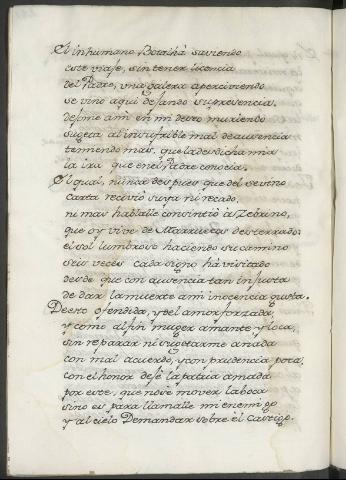 El inhumano Botalhá suviendo
este viaje, sin tener licencia
del Padre, una galera aperciviendo
se vino aqui dejando su presencia.
dejome a mi en mi deseo muriendo
sugeta al insufrible mal de ausencia
temiendo mas, que la desdicha mia
la ira que en el Padre conocia.
El qual, nunca despues que del se vino
carta recivió suya ni recado,
ni mas hablalle consintió a Zebrino,
que oy vive de Marruecos desterrado:
el sol lumbroso haciendo su camino
seis veces cada signo há visitado
desde que con ausencia tan injusta
de dar la muerte a mi inocencia gusta.
Deesto ofendida, y del amor forzada,
y como al fin muger amante y loca,
sin reparar ni sugetarme a nada
con mal acuerdo, y con prudencia poca,
con el honor dejé la patria amada
por este, que no se mover la boca
sino es para llamalle mi enemigo
y al cielo Demandar sobre el castigo.